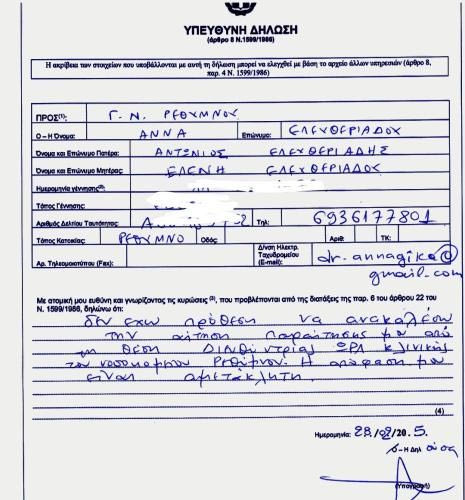 ΥΠΕΥΘΥΝΗ ΔΗΛΩΣΗ
(άρθρο 8 Ν.1599/1986)
Η ακρίβεια των στοιχείων που υποβάλλονται με αυτή τη δήλωση μπορεί να ελεγχθεί με βάση το αρχείο άλλων υπηρεσιών (άρθρο 8,
παρ. 4 Ν. 1599/1986)
ΠΡΟΣ(1): Γ. Ν. ΡΕΘΥΜΝΟΥ
Ο – Η Όνομα: ΑΝΝΑ Επώνυμο: ΕΛΕΥΘΕΡΙΑΔΟΥ
Όνομα και Επώνυμο Πατέρα: ΑΝΤΩΝΙΟΣ ΕΛΕΥΘΕΡΙΑΔΗΣ
Όνομα και Επώνυμο Μητέρας: ΕΛΕΝΗ ΕΛΕΥΘΕΡΙΑΔΟΥ
Ημερομηνία γέννησης(2):
Τόπος Γέννησης:
Αριθμός Δελτίου Ταυτότητας: Τηλ: 6936177801
Τόπος Κατοικίας: ΡΕΘΥΜΝΟ Οδός: Αριθ: ΤΚ:
Αρ. Τηλεομοιοτύπου (Fax): Δ/νση Ηλεκτρ. Ταχυδρομείου (Email): dr.annagika@
gmail.com
Με ατομική μου ευθύνη και γνωρίζοντας τις κυρώσεις (3), που προβλέπονται από της διατάξεις της παρ. 6 του άρθρου 22 του
Ν. 1599/1986, δηλώνω ότι:
δεν εχω πρόθεση να ανακαλέσω
την αίτηση παραίτησης μου από
τη θέση Διευθύντριας ΩΡΛ κλινικής
του νοσοκομείου Ρεθύμνου. Η απόφαση μου
είναι αμετάκλητη.
(4)
Ημερομηνία: 28/02/2025.
Ο – Η Δηλ ούσα
(Υπογραφή)